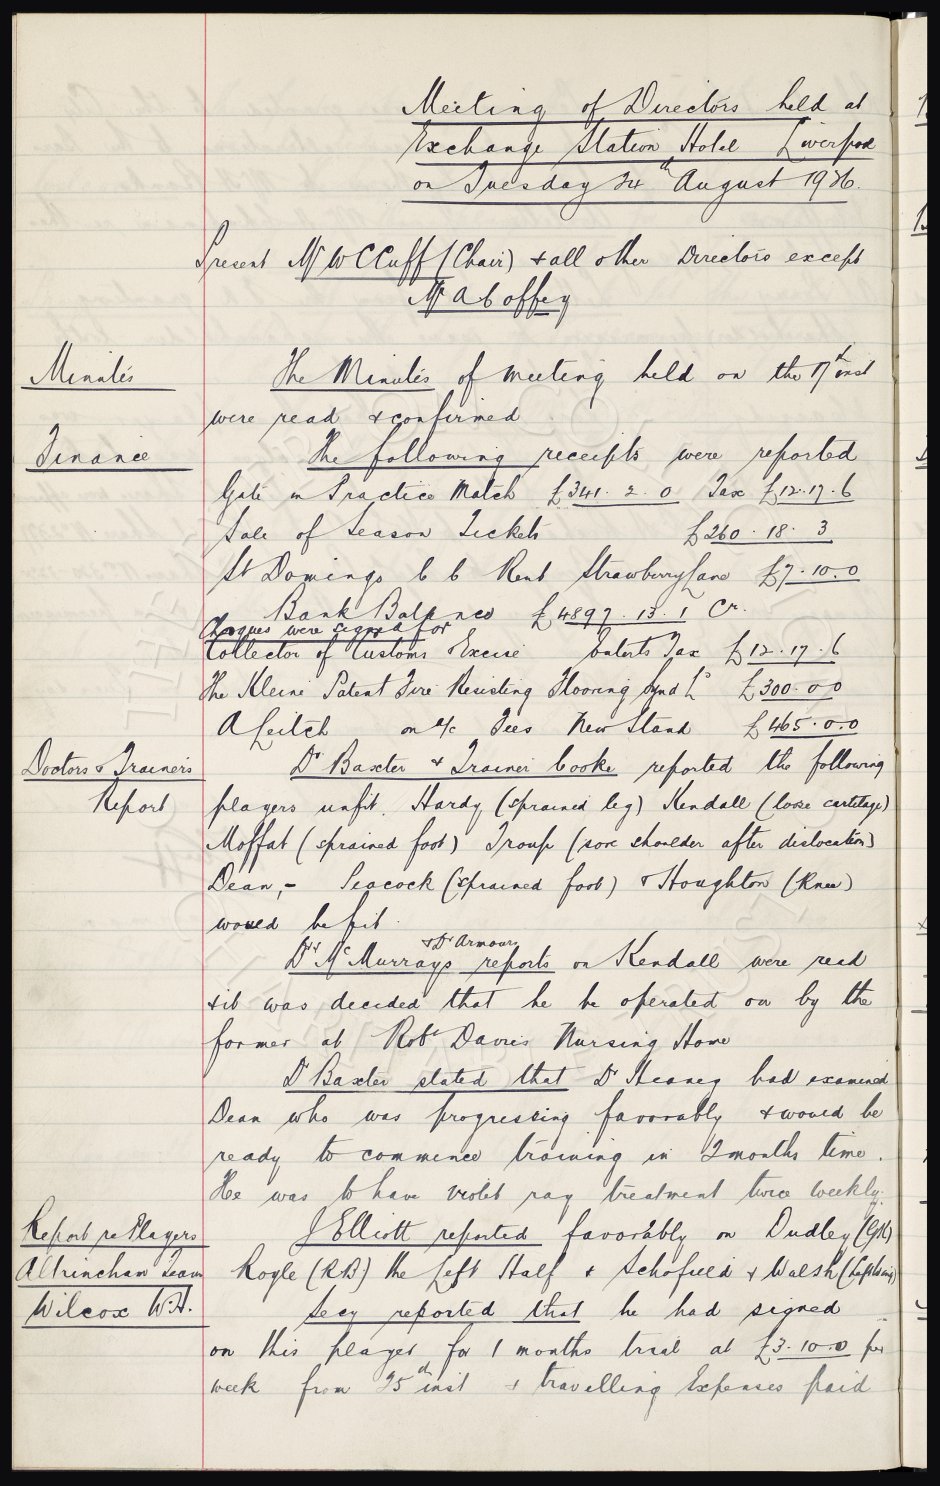 Meeting of Directors held at
Exchange Station Hotel Liverpool
on Tuesday 24th August 1926.
Present Mr W C Cuff (Chair) & all other Directors except
Mr A Coffey
Minutes
The Minutes of meeting held on the 17th inst
were read & confirmed
Finance
The following receipts were reported
Gate in Practice Match £341. 2. 0 Tax £12.17.6
Sale of Season Tickets £260. 18. 3
St Domingo C C Rent Strawberry Lane £7.10.0
Bank Balance £4897. 13. 1 Cr.
Cheques were signed for
Collector of Customs & Excise Enterts Tax £12.17.6
The Kleine Patent Fire Resisting Flooring Synd Ld £300.0.0
A Leitch on a/c Fees New Stand £465.0.0
Doctors & Trainers
Report
Dr Baxter & Trainer Cooke reported the following
players unfit. Hardy (sprained leg) Kendall (loose cartilage)
Moffat (sprained foot) Troup (sore shoulder after dislocation)
Dean, - Peacock (sprained foot) & Houghton (Knee)
would be fit.
Drs McMurrays & Dr Armours reports on Kendall were read
& it was decided that he be operated on by the
former at Robt Davies Nursing Home
Dr Baxter stated that Dr Heaney had examined
Dean who was progressing favorably & would be
ready to commence training in 2 months time.
He was to have violet ray treatment twice weekly.
Report re Players
Altrincham Team
J Elliott reported favorably on Dudley (GK)
Royle (RB) the Left Half & Schofield & Walsh (Left Wing)
Wilcox W.H.
Secy reported that he had signed
on this player for 1 months trial at £3.10.0 per
week from 25th inst & travelling Expenses paid